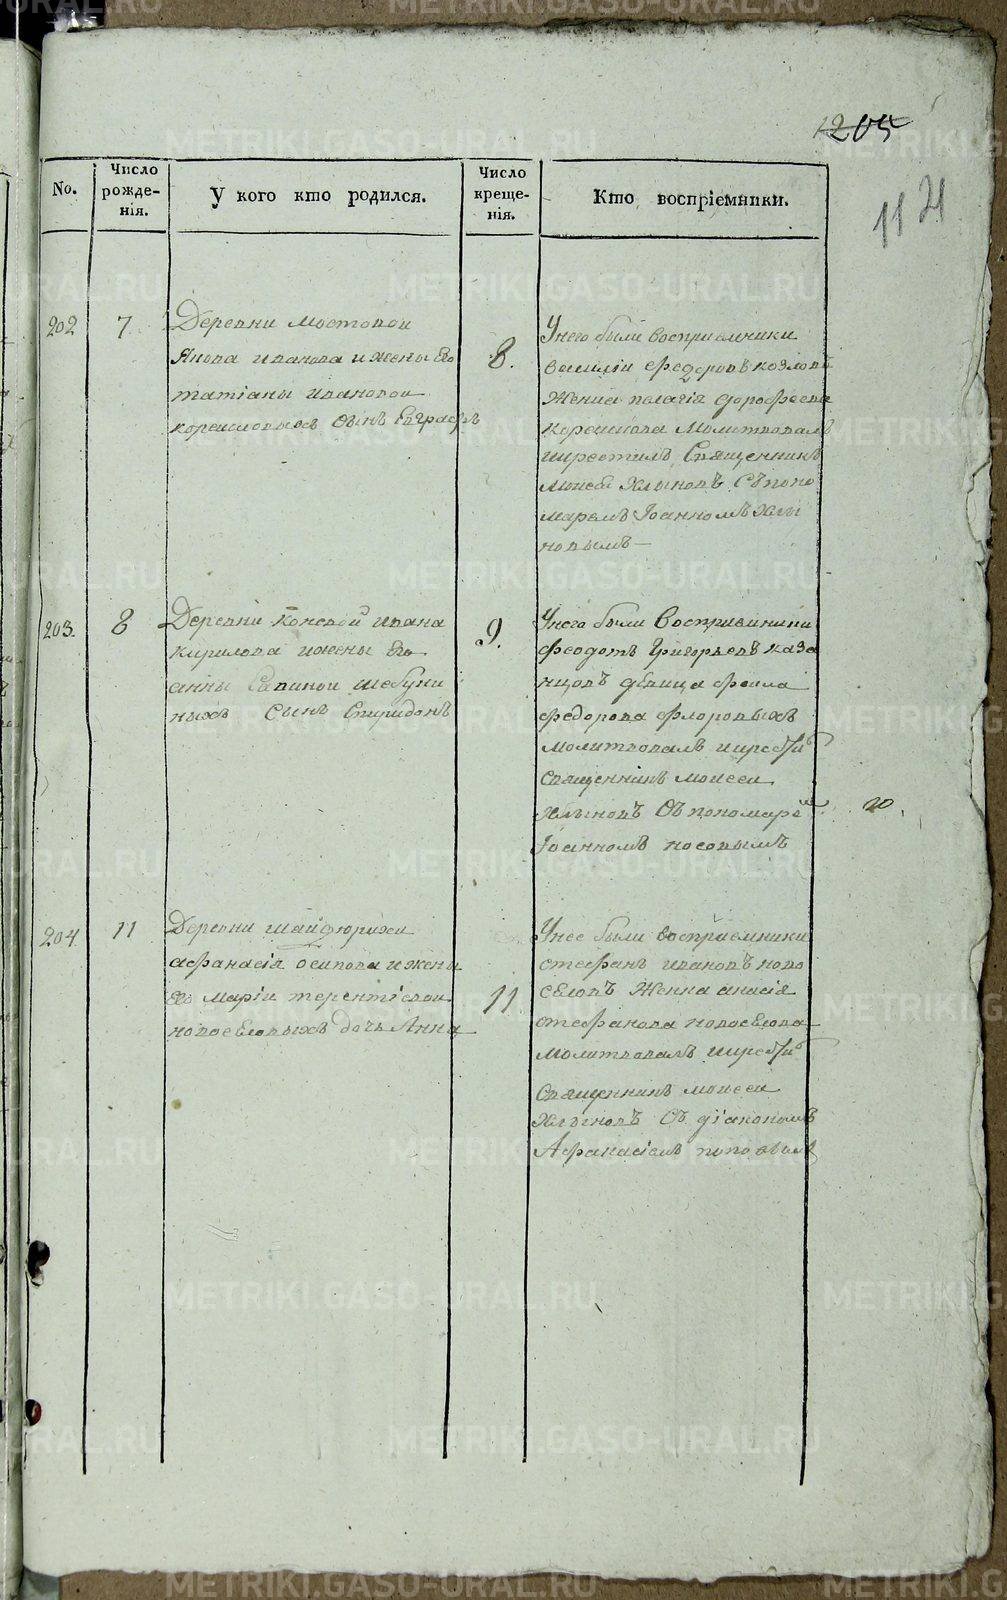 1205
112
No.
Число рожде-нія.
У кого кто родился.
Число креще-нія.
Кто воспріемники.
202
7
Деревни мостовои
Якова иванова и жены его
татіаны ивановои
корепановыхъ Сынъ Евграфъ
8.
Унего были восприемники
василіи федоровъ козловъ
Женка пелагія дорофеева
Молитвовалъ
икрестилъ Священникъ
Моисеи Хлыновъ Съ поно
маремъ Іоанномъ Хлы
новымъ
203.
8
Деревни Коневой ивана
кирилова ижены его
анны Савинои шебуни
ныхъ Сынъ Спиридонъ
9.
Унего были Восприемники
феодотъ Григорьевъ каза
нцовъ девица фекла
федорова флоровыхъ
молитвовалъ икрести
Священникъ моисеи
Хлыновъ Съ пономаре
Іоанномъ носовымъ
20.
204
11
Деревни шайдюрихи
афанасія осипова и жены
его маріи терентіевои
новоселовыхъ дочь Анна
11.
Унее были восприемники
стефанъ ивановъ ново
селовъ Женка
стефанова новоселова
молитвовалъ икрести
Священникъ моисеи
Хлыновъ Съ діакономъ
Афанасіемъ поповымъ
METRIKI.GASO-URAL.RU